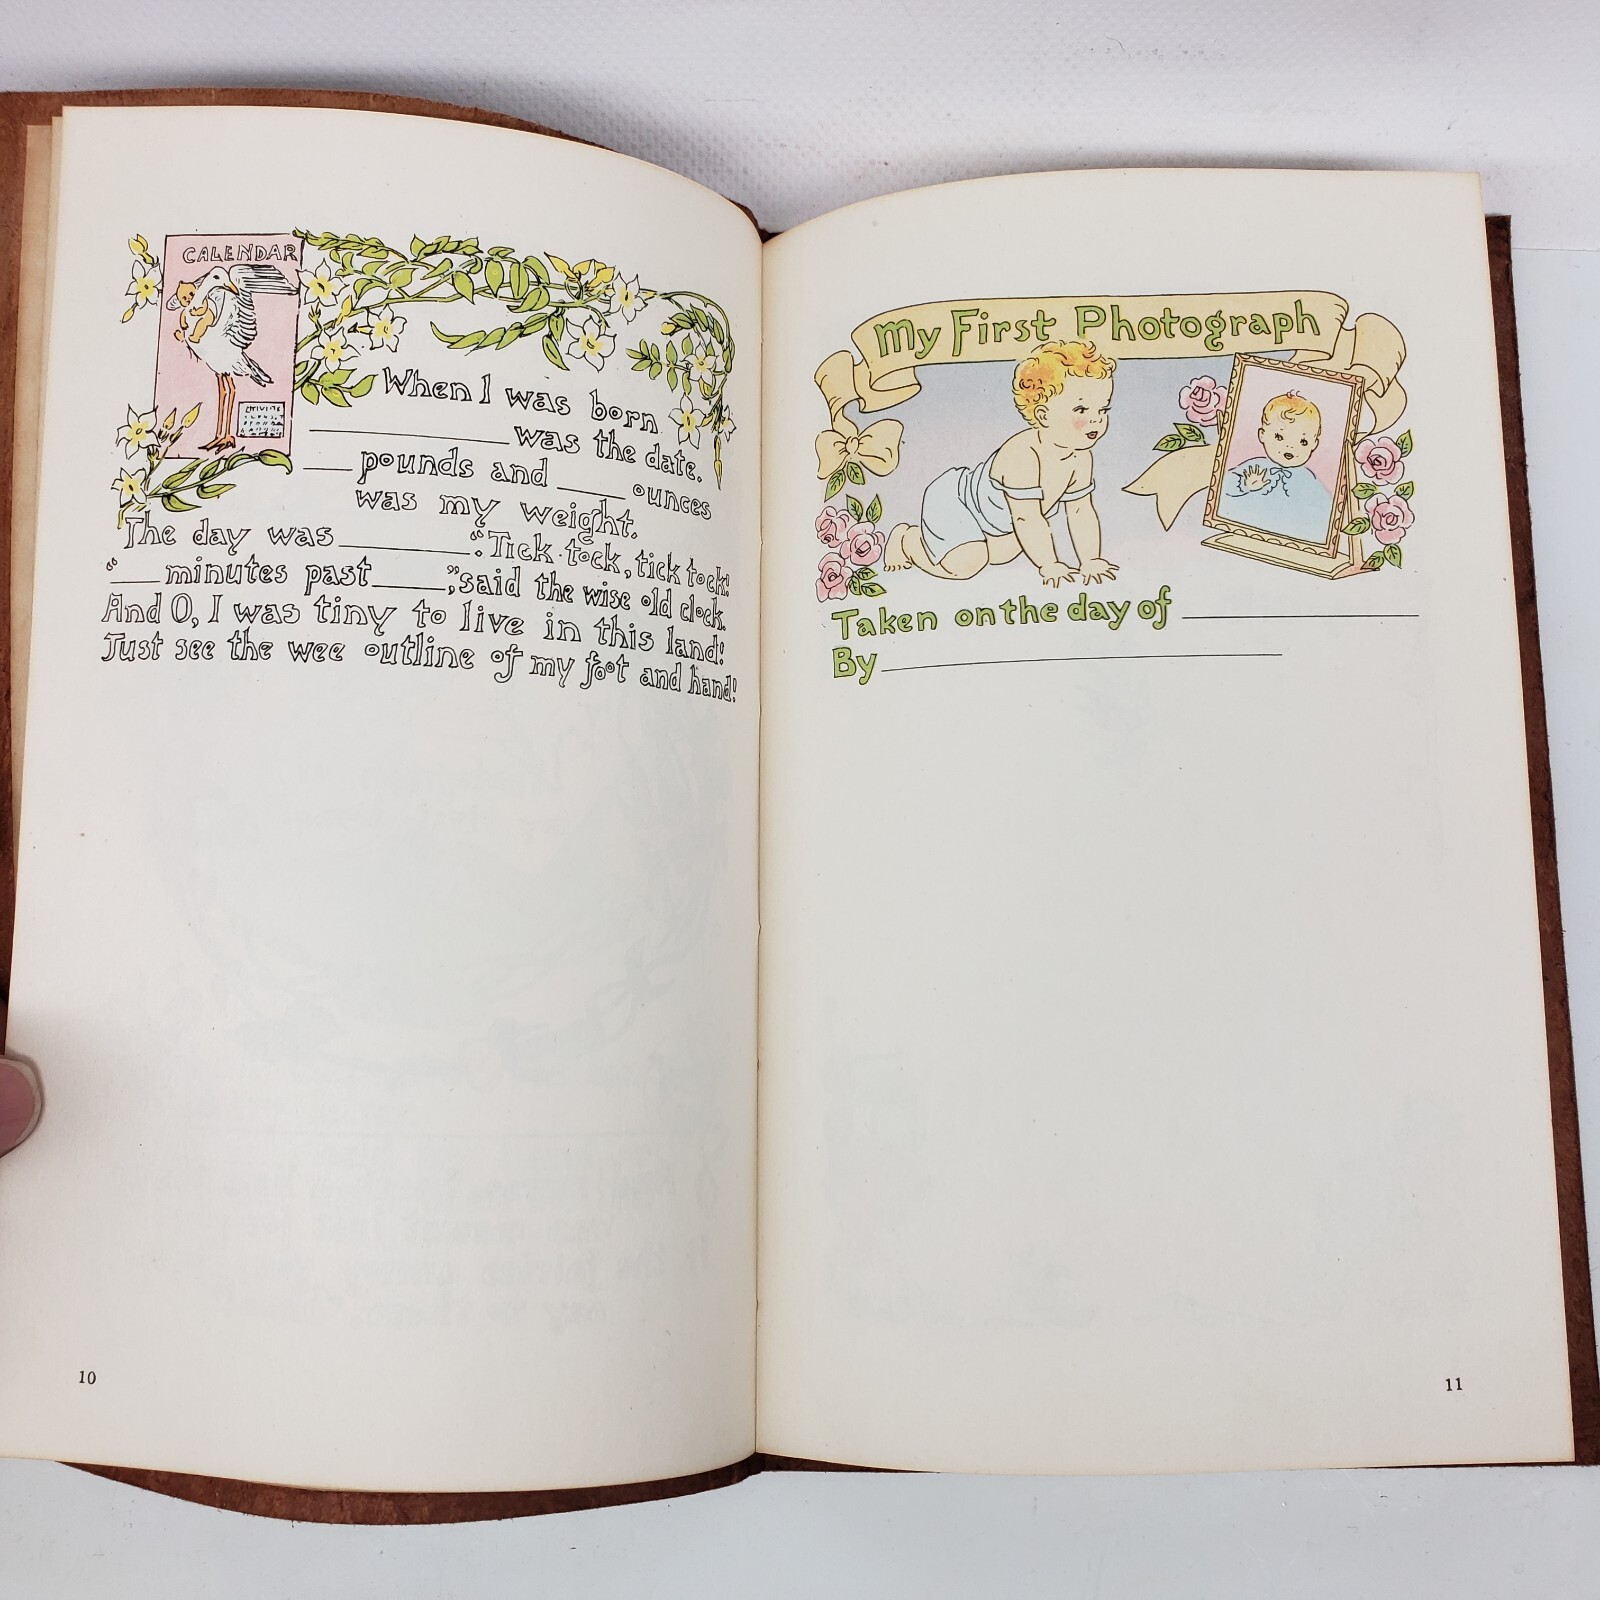 CALENDAR
When I was born
__________ was the date.
___ pounds and ____ ounces
was my weight.
The day was ________. "Tick-tock, tick tock!
"___ minutes past ____," said the wise old clock.
And O, I was tiny to live in this land!
Just see the wee outline of my foot and hand!
10
My First Photograph
Taken on the day of ______________
By ______________________
11